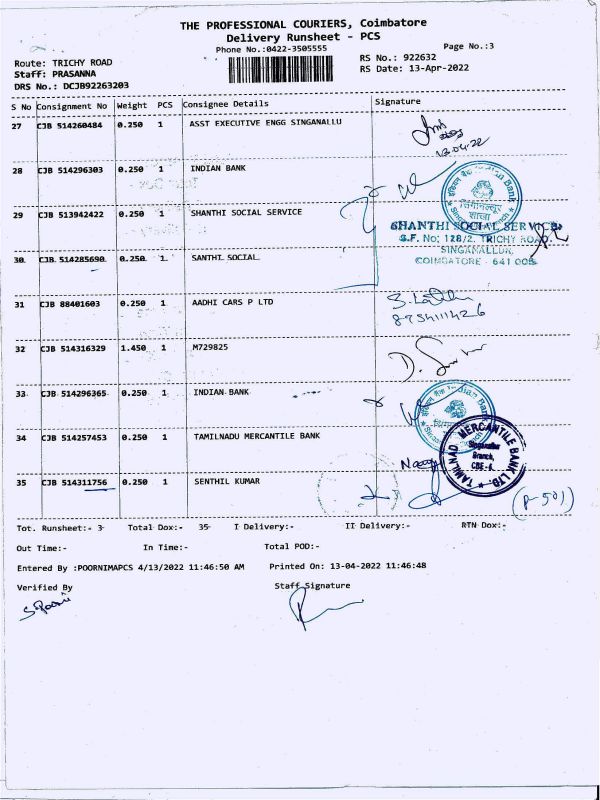 THE PROFESSIONAL COURIERS, Coimbatore
Delivery Runsheet - PCS
Phone No.:0422-3505555
Page No.:3
Route: TRICHY ROAD
RS No.: 922632
Staff: PRASANNA
RS Date: 13-Apr-2022
DRS No.: DCJB92263203
S No Consignment No Weight PCS Consignee Details Signature
27 CJB 514260484 0.250 1 ASST EXECUTIVE ENGG SINGANALLU
13.04.22
28 CJB 514296303 0.250 1 INDIAN BANK
Indian Bank
29 CJB 513942422 0.250 1 SHANTHI SOCIAL SERVICE
SHANTHI SOCIAL SERVICE
S.F. No: 128/2. TRICHY ROAD.
SINGANALLUR,
COIMBATORE - 641 005
30 CJB 514285690 0.250 1 SANTHI SOCIAL
31 CJB 88401603 0.250 1 AADHI CARS P LTD
32 CJB 514316329 1.450 1 M729825
33 CJB 514296365 0.250 1 INDIAN BANK
Indian Bank
34 CJB 514257453 0.250 1 TAMILNADU MERCANTILE BANK
TAMILNAD MERCANTILE BANK LTD.
Singanallur
Branch,
CBE-5.
35 CJB 514311756 0.250 1 SENTHIL KUMAR
(P-501)
Tot. Runsheet:- 3 Total Dox:- 35 I Delivery:- II Delivery:- RTN Dox:-
Out Time:- In Time:- Total POD:-
Entered By :POORNIMAPCS 4/13/2022 11:46:50 AM Printed On: 13-04-2022 11:46:48
Verified By Staff Signature